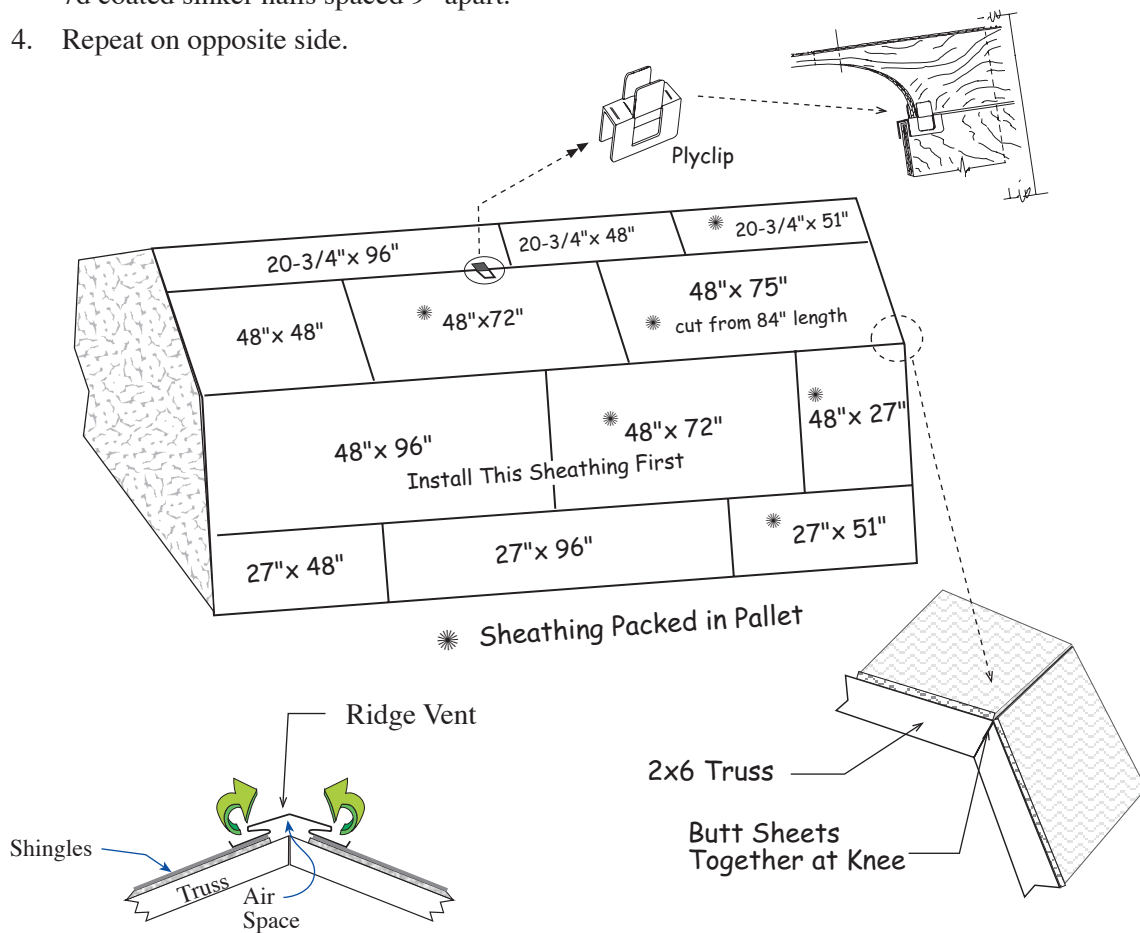 7d coated sinker nails spaced 9" apart.
4. Repeat on opposite side.
Plyclip
20-3/4"x 96"
20-3/4"x 48"
20-3/4"x 51"
48"x 48"
48"x72"
48"x 75"
cut from 84" length
48"x 96"
48"x 72"
48"x 27"
Install This Sheathing First
27"x 48"
27"x 96"
27"x 51"
Sheathing Packed in Pallet
Ridge Vent
Shingles
Truss
Air
Space
2x6 Truss
Butt Sheets
Together at Knee